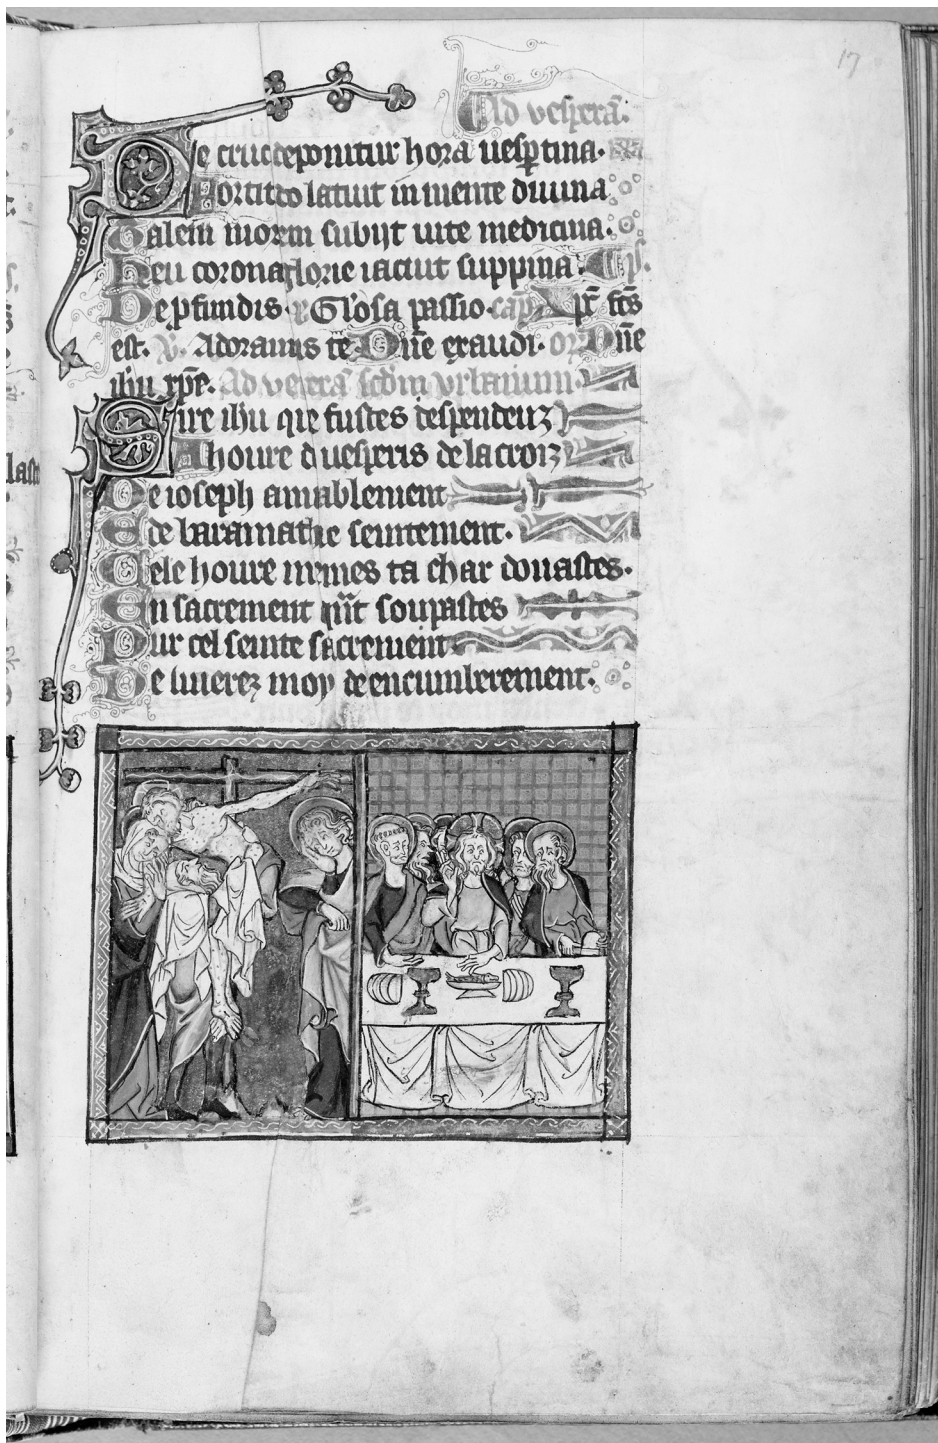 17
Ad vesperã.
De cruce deponitur hora uesꝑtina.
Fortitudo latuit in mente diuina
Talem mortem subijt uite medicina.
Heu corona glorie iacuit suppina. ps.
De ꝓfundis. Gl'osa passio. cap̃ Xp̃c fc̃s
est. V. Adoramus te Dñe exaudi. or̃ Dñe
ih̃u xp̃e. Ad vesperas scd̃m vrbanum.
Sire ih̃u qie fustes despendeuz
A houre d uesperis de la croiz
De ioseph amiablement
E de baramathie seintement.
Cele houre memes ta char donastes.
En sacrement qñt soupastes
Pur cel seinte sacrement
De liuerez moy de encumbrement.